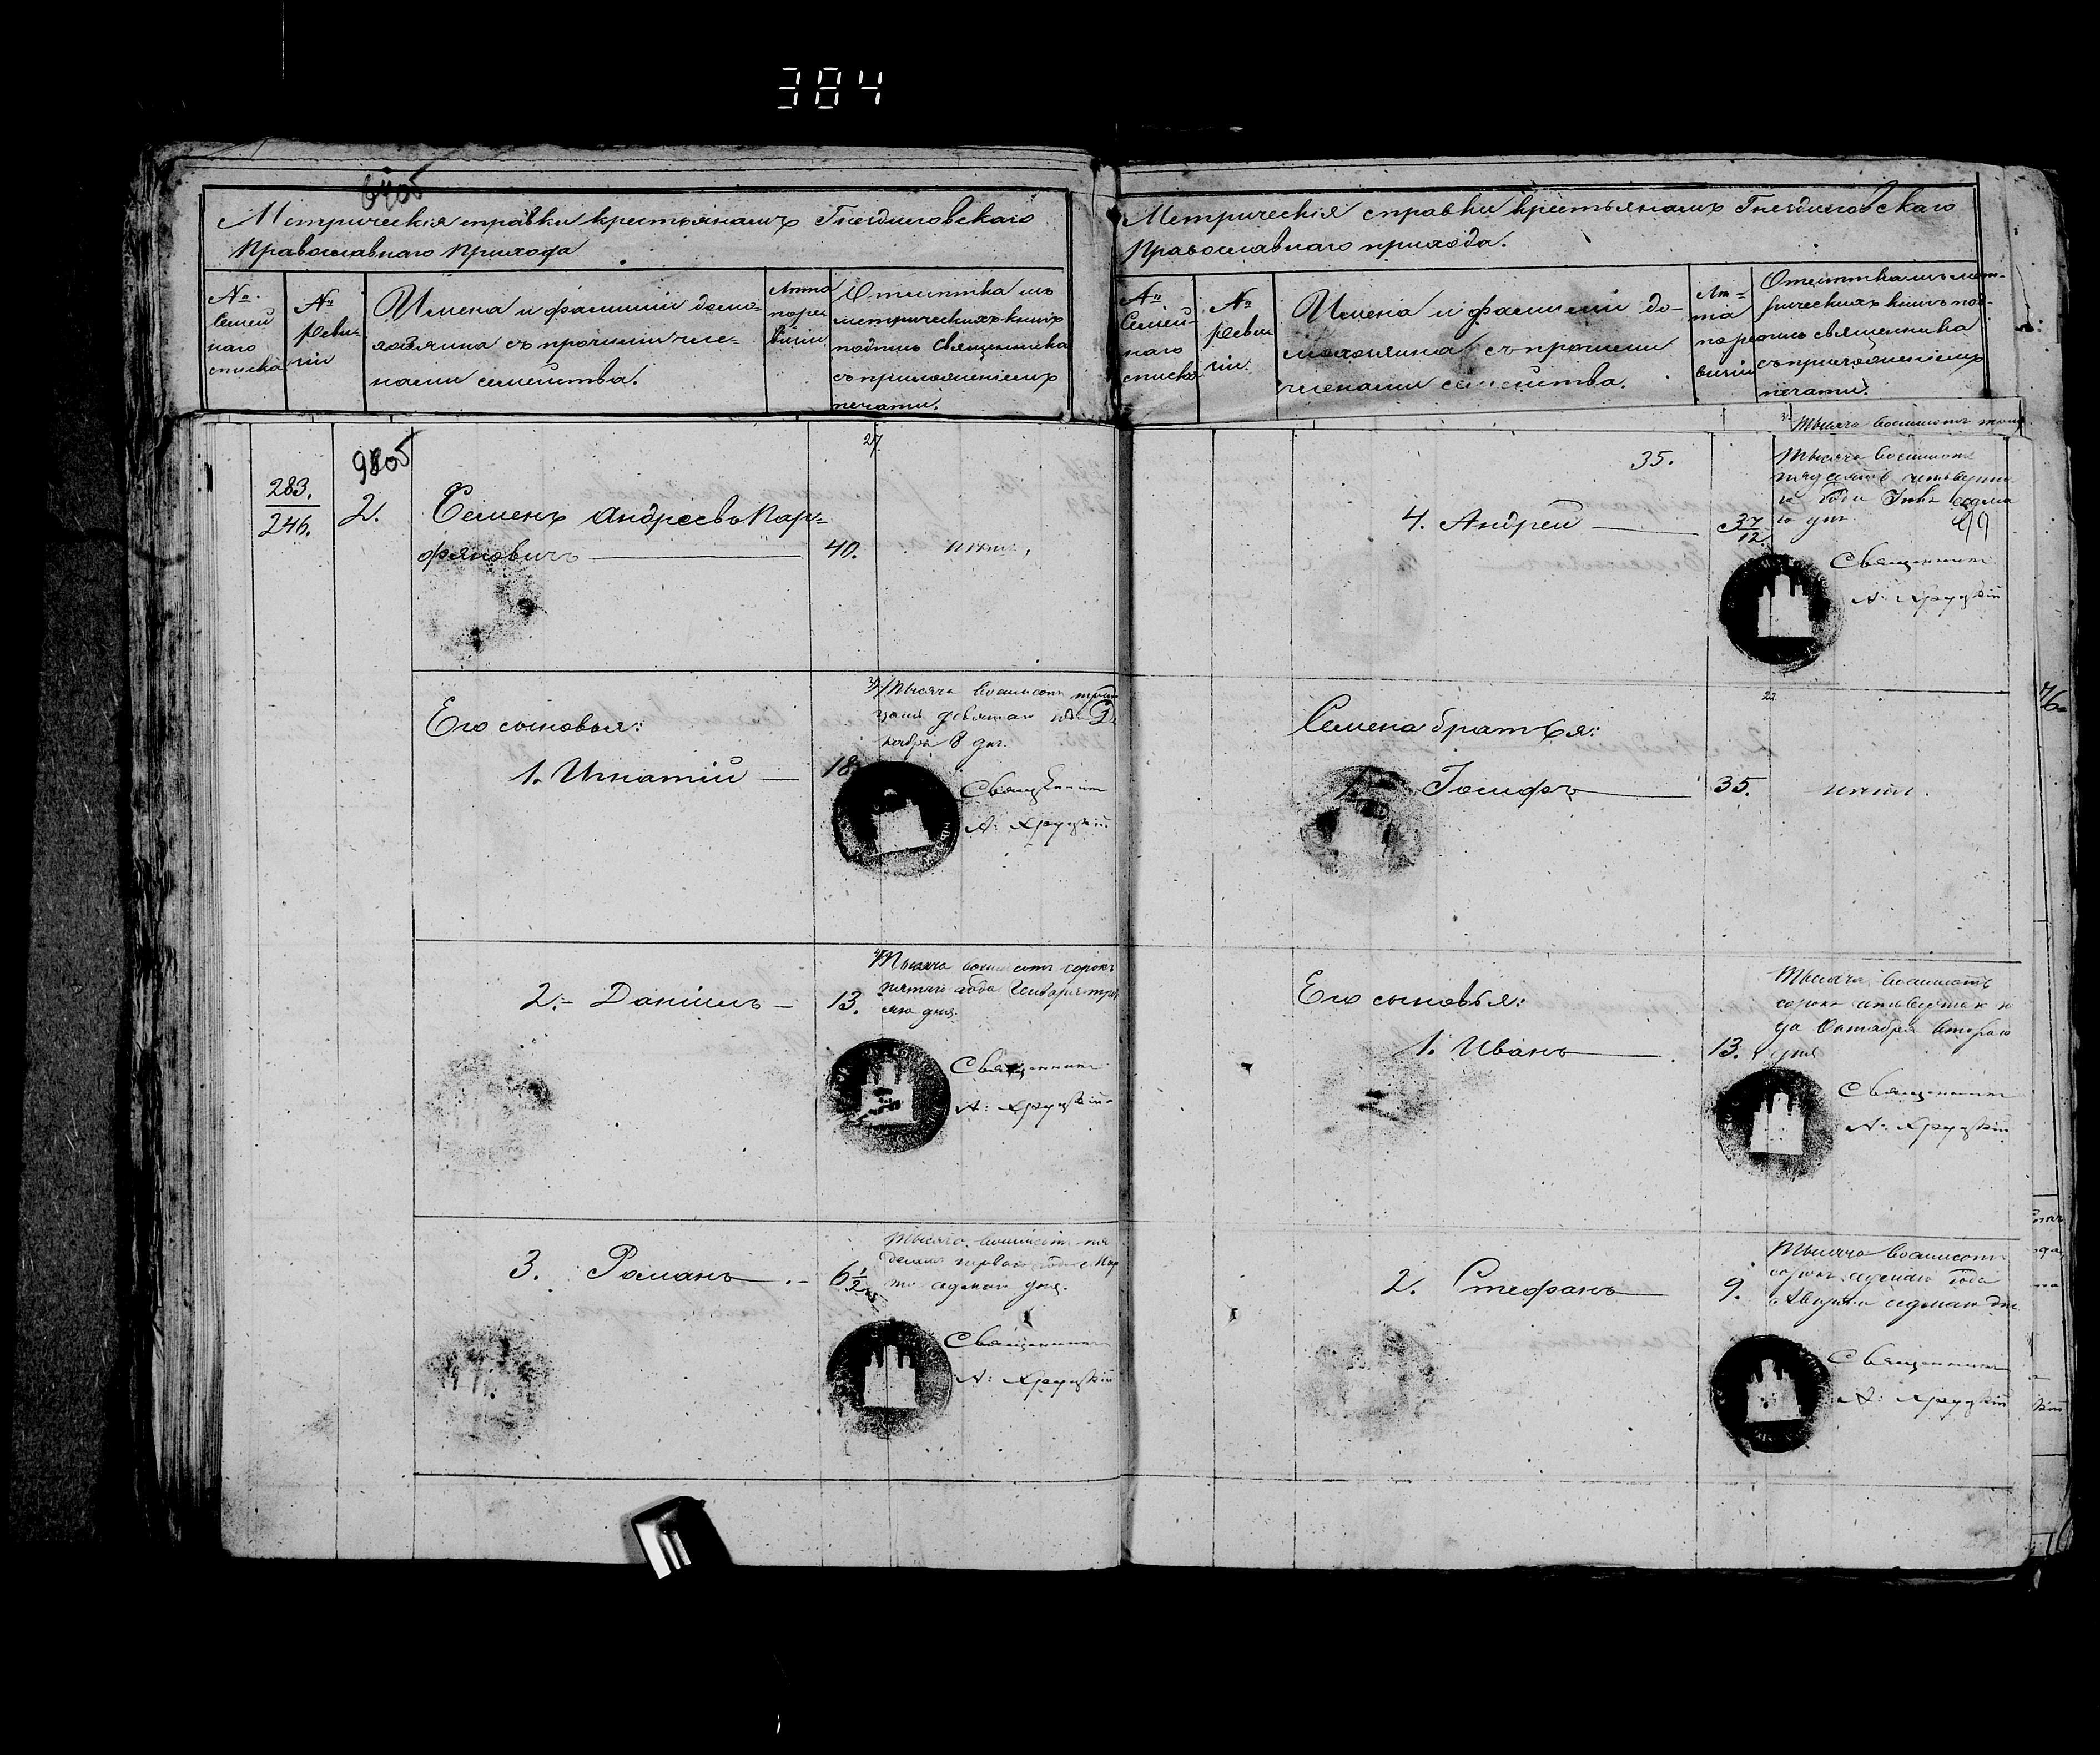 384
Метрическія справки крестьянамъ Гнездиловскаго
Православнаго Прихода
№
Семей
наго
списка
№
Реви-
зіи
Имена и фамиліи домо-
хозяина съ прочими чле-
нами семейства.
Лѣта
по ре
визіи
Отмѣтка изъ
метрическихъ книгъ
подпись Священника
съ приложеніемъ
печати.
283.
246.
9805
2.
Семенъ Андреевъ Пар-
фяновичъ
40.
27
Его сыновья:
1. Игнатій
18.
Тысяча восьмисотъ трид
8 дня.
Священникъ
А: Хруцкій
2. Даніилъ
13.
Тысяча восьмисотъ сорокъ
пятаго года Генваря
дня.
Священникъ
А: Хруцкій
3. Романъ
6 1/2
Тысяча восьмисотъ
перваго года Мар
та седьмаго дня.
Священникъ
А: Хруцкій
Метрическія справки крестьянамъ Гнездиловскаго
Православнаго прихода.
№
Семей-
наго
списка
№
Реви
зіи.
Имена и фамиліи до-
мохозяина съ прочими
членами семейства.
Лѣ-
та
по ре
визіи
Отмѣтка изъ мет-
рическихъ книгъ под-
пись священника
съ приложеніемъ
печати.
Тысяча восьмисотъ
35.
4. Андрей
3 7/12
Тысяча восьмисотъ
пятдесятъ четверта
го года
го дня
Священникъ
А: Хруцкій
Семена братья:
22
1. Іосифъ
35.
Его сыновья:
1. Иванъ
13.
Тысяча восьмисотъ
сорокъ четвертаго го
да Октября втораго
дня
Священникъ
А: Хруцкій
2. Стефанъ
9.
Тысяча восьмисотъ
сорокъ года
Августа седьмаго дня
Священникъ
А: Хруцкій